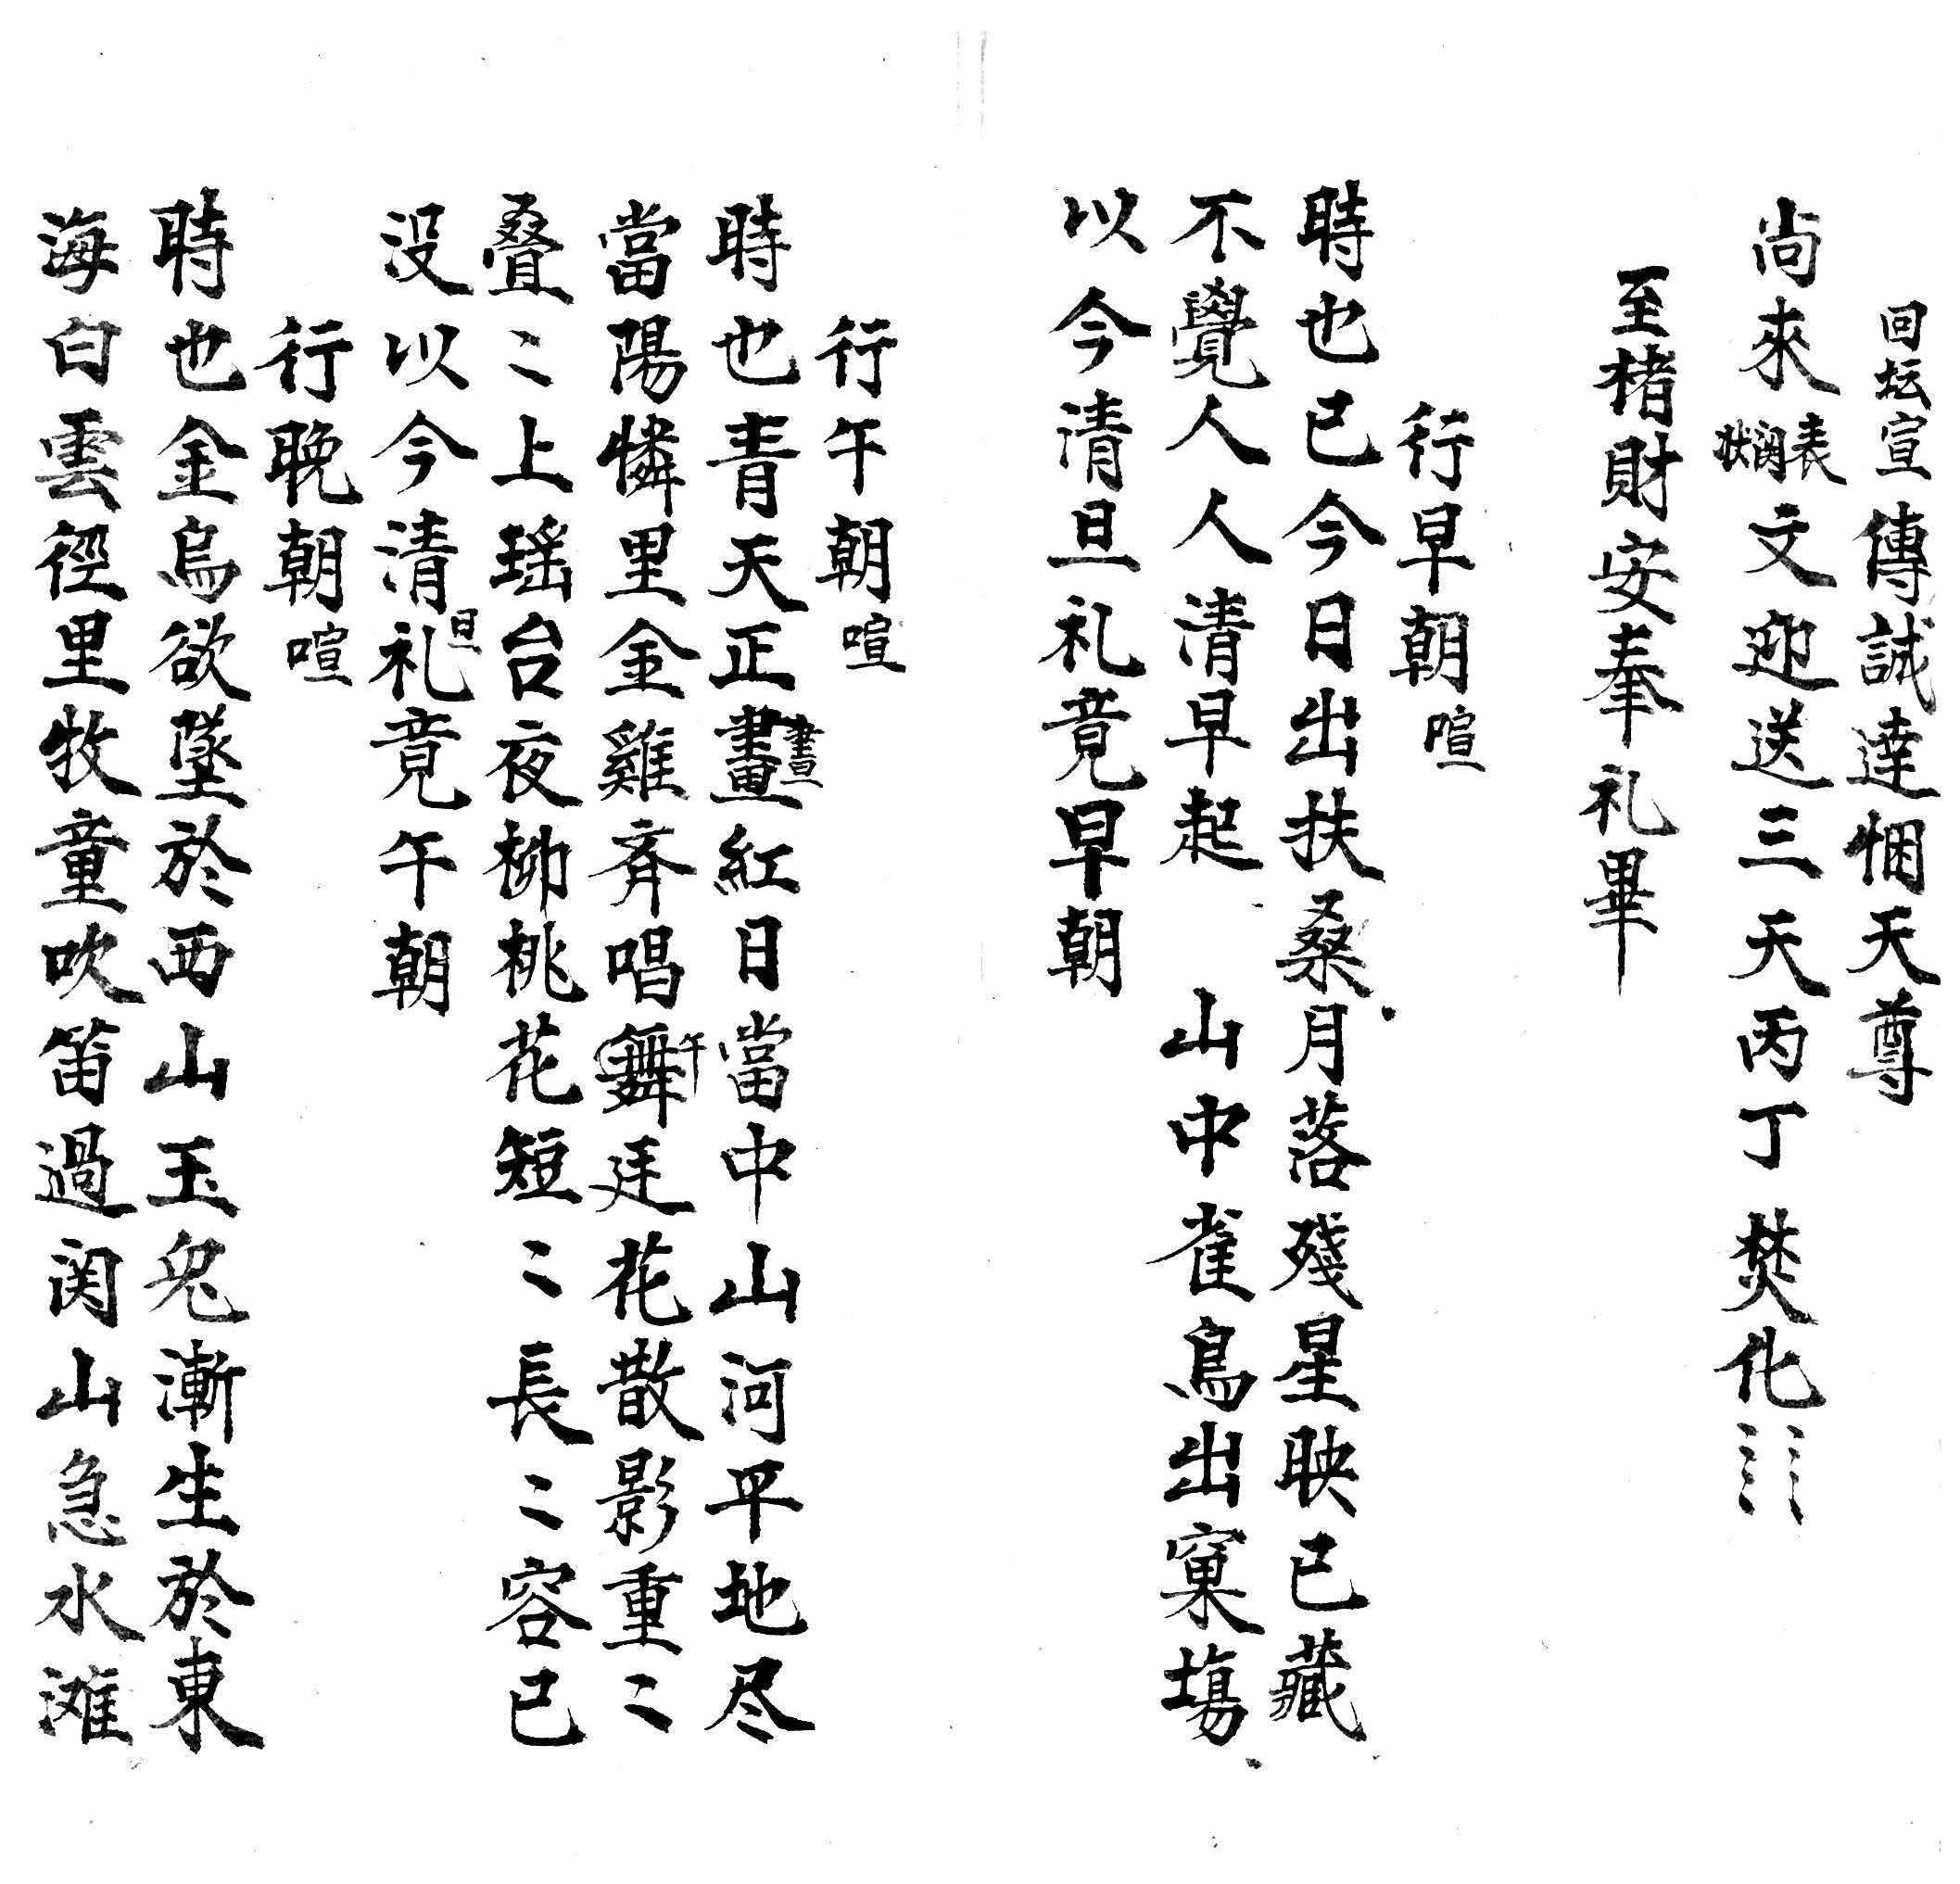 回坛宣傳誠達悃天尊
尚來表關狀文迎送三天丙丁焚化
至楮財安奉礼畢
行早朝喧
時也已今日出扶桑月落殘星映已藏
不覺人人清早起 山中雀鳥出窠場
以今清旦礼竟早朝
行午朝喧
時也青天正畫晝紅日當中山河平地尽
當陽憐里金雞斉唱舞午廷花散影重〻
叠〻上瑶台夜柳桃花短〻長〻容已
没以今清旦礼竟午朝
行晚朝喧
時也金烏欲墜於西山玉兔漸生於東
海白雲徑里牧童吹笛過関山急水滩